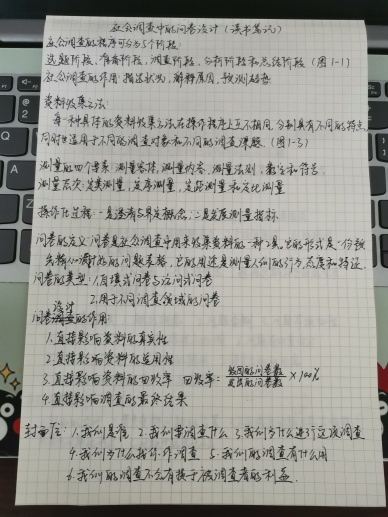 社会调查中的问卷设计（读书笔记）
社会调查的程序可分为5个阶段：
选题阶段、准备阶段、调查阶段、分析阶段和总结阶段（图1-1）
社会调查的作用：描述状况，解释原因，预测趋势
资料收集方法：
每一种具体的资料收集方法在操作程序上互不相同，分别具有不同的特点
同时也适用于不同的调查对象和不同的调查课题（图1-3）
测量的四个要素：测量客体，测量内容，测量法则，数字和符号
测量层次：定类测量，定序测量，定距测量和定比测量
操作化过程：一是澄清与界定概念；二是发展测量指标
问卷的定义：问卷是社会调查中用来收集资料的一种工具，它的形式是一份
精心设计的问题表格，它的用途是测量人们的行为，态度和特征
问卷的类型：1.自填式问卷与访问式问卷
2.用于不同调查领域的问卷
问卷设计的作用：
1.直接影响资料的真实性
2.直接影响资料的适用性
3.直接影响资料的回收率 回收率=收回的问卷数/发出的问卷数×100%
4.直接影响调查的最终结果
封面信：1.我们是谁 2.我们要调查什么 3.我们为什么进行这项调查
4.我们为什么找你作调查 5.我们的调查有什么用
6.我们的调查不会有损于被调查者的利益.